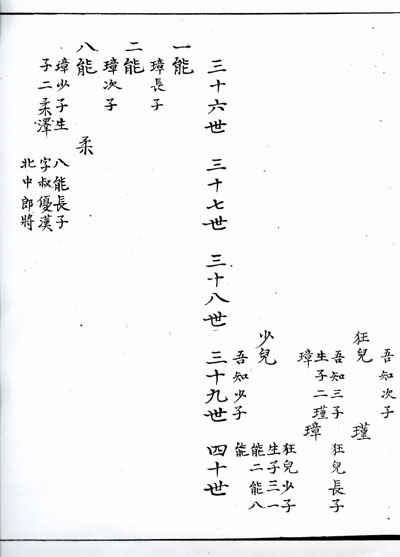 吾知次子
狂兒
吾知三子
生子二瑾
璋
少兒
吾知少子
瑾
狂兒長子
璋
狂兒少子
生子三一
能二能八
能
三十六世 三十七世 三十八世 三十九世 四十世
一能
璋長子
二能
璋次子
八能
璋少子生
子二柔澤
柔
八能長子
字叔優漢
北中郎將